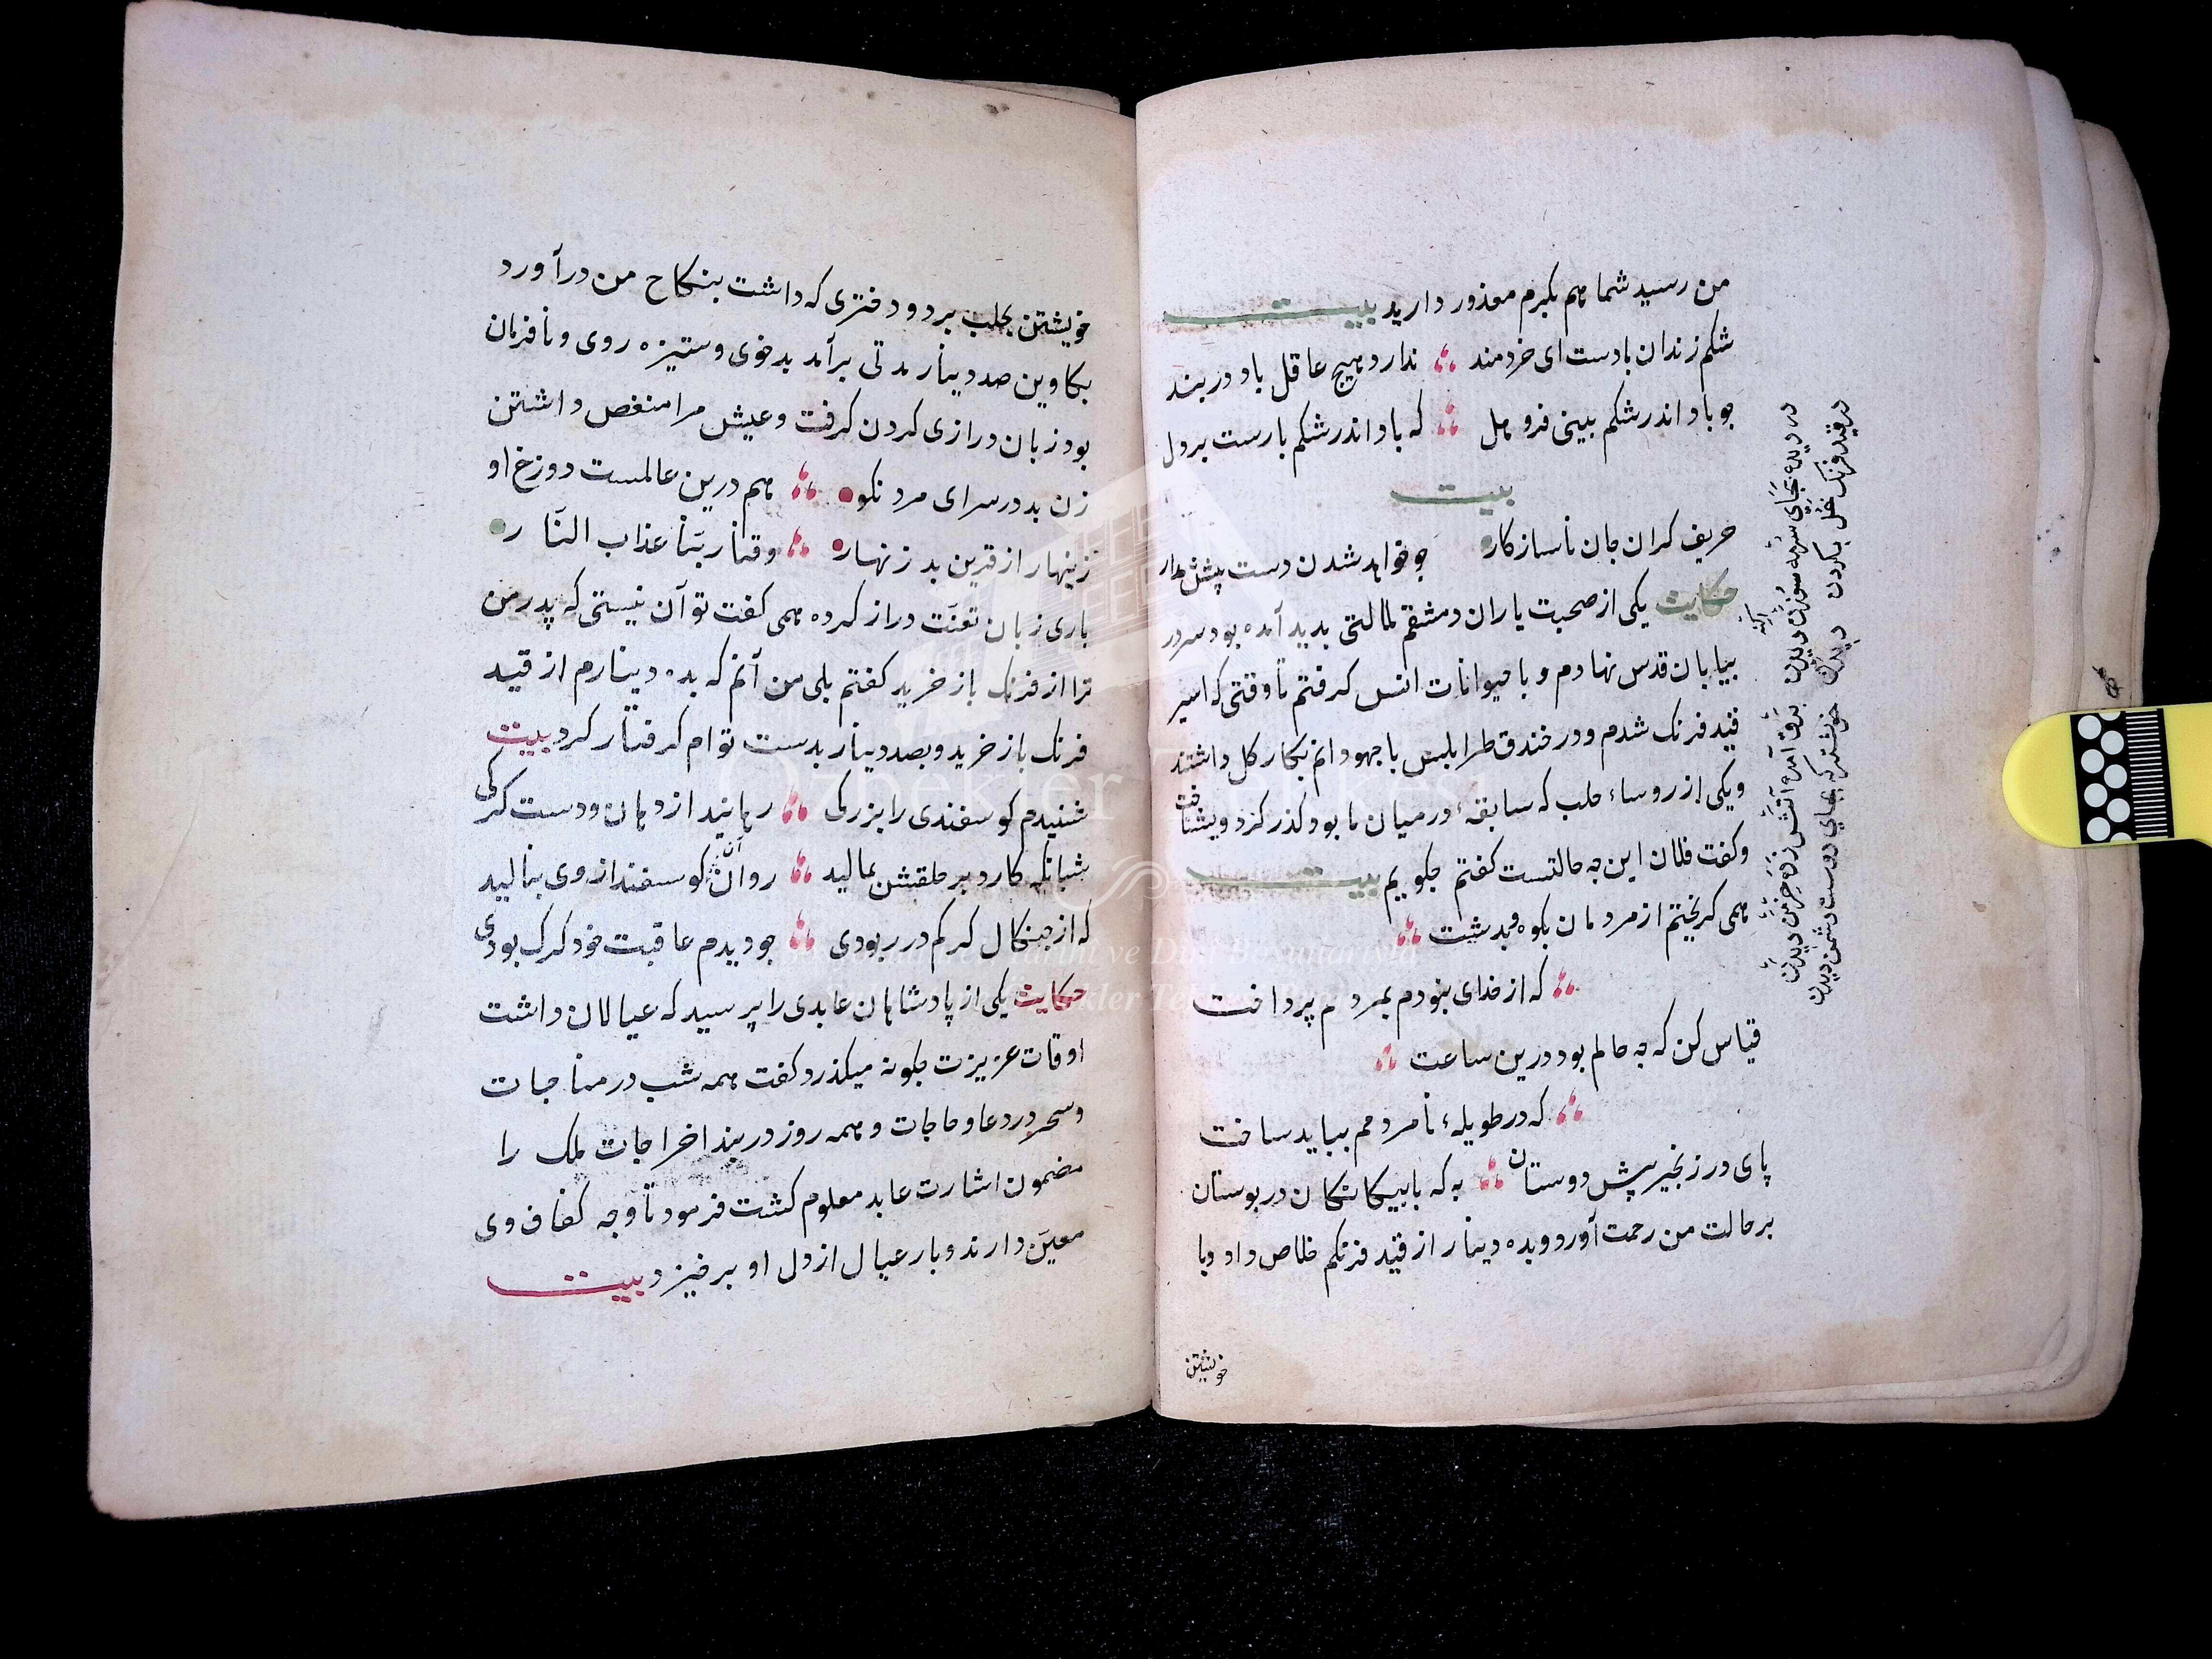 من رسید شما هم بکرم معذور دارید بیت
شکم زندان بادست ای خردمند ندارد هیچ عاقل باد در بند
جو باد اندر شکم بینی فرو هل که باد اندر شکم بارست بر دل
بیت
حریف کران جان ناسازکار جو خواهد شدن دست پیشش مدار
حکایت یکی از صحبت یاران دمشقم ملالتی بدید آمده بود سر در
بیابان قدس نهادم و با حیوانات انس کرفتم تا وقتی که اسیر
قید فرنک شدم و در خندق طرابلس با جهودانم بکار کل داشتند
و یکی از روساء حلب که سابقهٔ در میان ما بود کذر کرد و بشناخت
و کفت فلان این جه حالتست کفتم جکویم بیت
همی کریختم از مردمان بکوه و بدشت
که از خدای نبودم بمردم پرداخت
قیاس کن که جه حالم بود درین ساعت
که در طویلهٔ نامردمم بباید ساخت
پای در زنجیر پیش دوستان به که با بیکانکان در بوستان
بر حالت من رحمت آورد و بده دینار از قید فرنکم خلاص داد و با
خویشتن
در دیده بجای سرمه سوزن دیدن برق آمده آتش زده خرمن دیدن
در قید فرنک غل بکردن دیدن خوشتر که بجای دوست دشمن دیدن
خویشتن بحلب برد و دختری که داشت بنکاح من درآورد
بکاوین صد دینار مدتی برآمد بدخوی و ستیزه روی و نافرمان
بود زبان درازی کردن کرفت و عیش مرا منغص داشتن
زن بد در سرای مرد نکو هم درین عالمست دوزخ او
زینهار از قرین بد زنهار وقنا ربّنا عذاب النّار
باری زبان تعنّت دراز کرده همی کفت تو آن نیستی که پدر من
ترا از فرنک باز خرید کفتم بلی من آنم که بده دینارم از قید
فرنک باز خرید و بصد دینار بدست توام کرفتار کرد بیت
شنیدم کوسفندی را بزرکی رهانید از دهان و دست کرکی
شبانکه کارد بر حلقش بمالید روان کوسفند از وی بنالید
که از جنکال کرکم در ربودی جو دیدم عاقبت خود کرک بودی
حکایت یکی از پادشاهان عابدی را پرسید که عیالان داشت
اوقات عزیزت جکونه میکذرد کفت همه شب در مناجات
و سحر در دعا و حاجات و همه روز در بند اخراجات ملک را
مضمون اشارت عابد معلوم کشت فرمود تا وجه کفاف وی
معیّن دارند و بار عیال از دل او برخیزد بیت